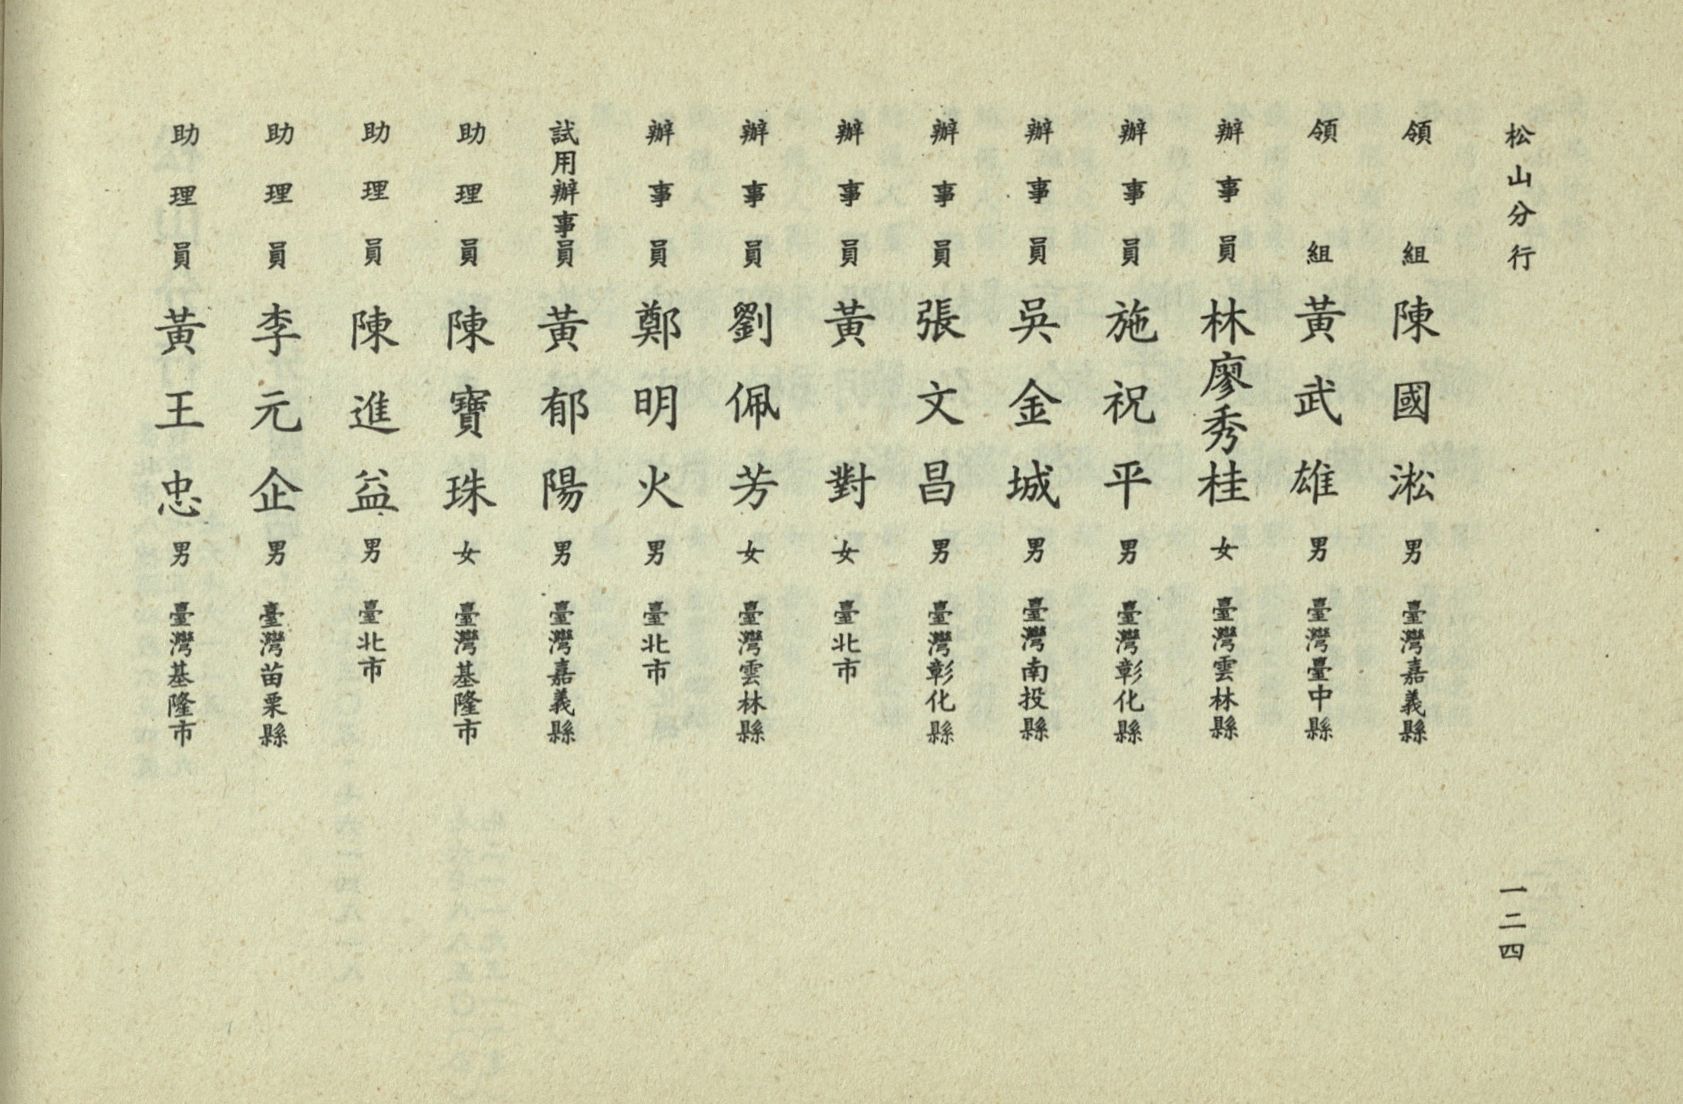 松山分行
一二四
領組 陳國淞 男 臺灣嘉義縣
領組 黃武雄 男 臺灣臺中縣
辦事員 林廖秀桂 女 臺灣雲林縣
辦事員 施祝平 男 臺灣彰化縣
辦事員 吳金城 男 臺灣南投縣
辦事員 張文昌 男 臺灣彰化縣
辦事員 黃對 女 臺北市
辦事員 劉佩芳 女 臺灣雲林縣
辦事員 鄭明火 男 臺北市
試用辦事員 黃郁陽 男 臺灣嘉義縣
助理員 陳寶珠 女 臺灣基隆市
助理員 陳進益 男 臺北市
助理員 李元企 男 臺灣苗栗縣
助理員 黃王忠 男 臺灣基隆市